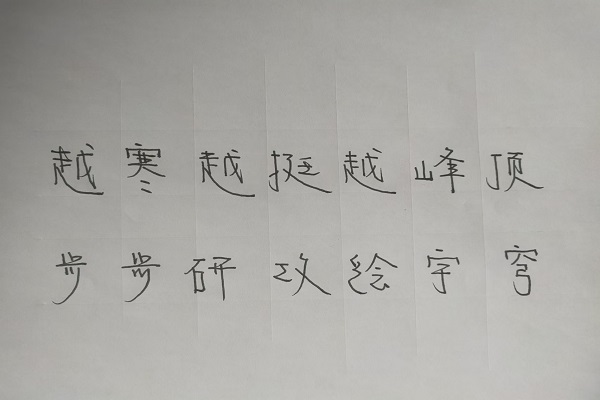 越寒越挺越峰顶
步步研攻绘字穹